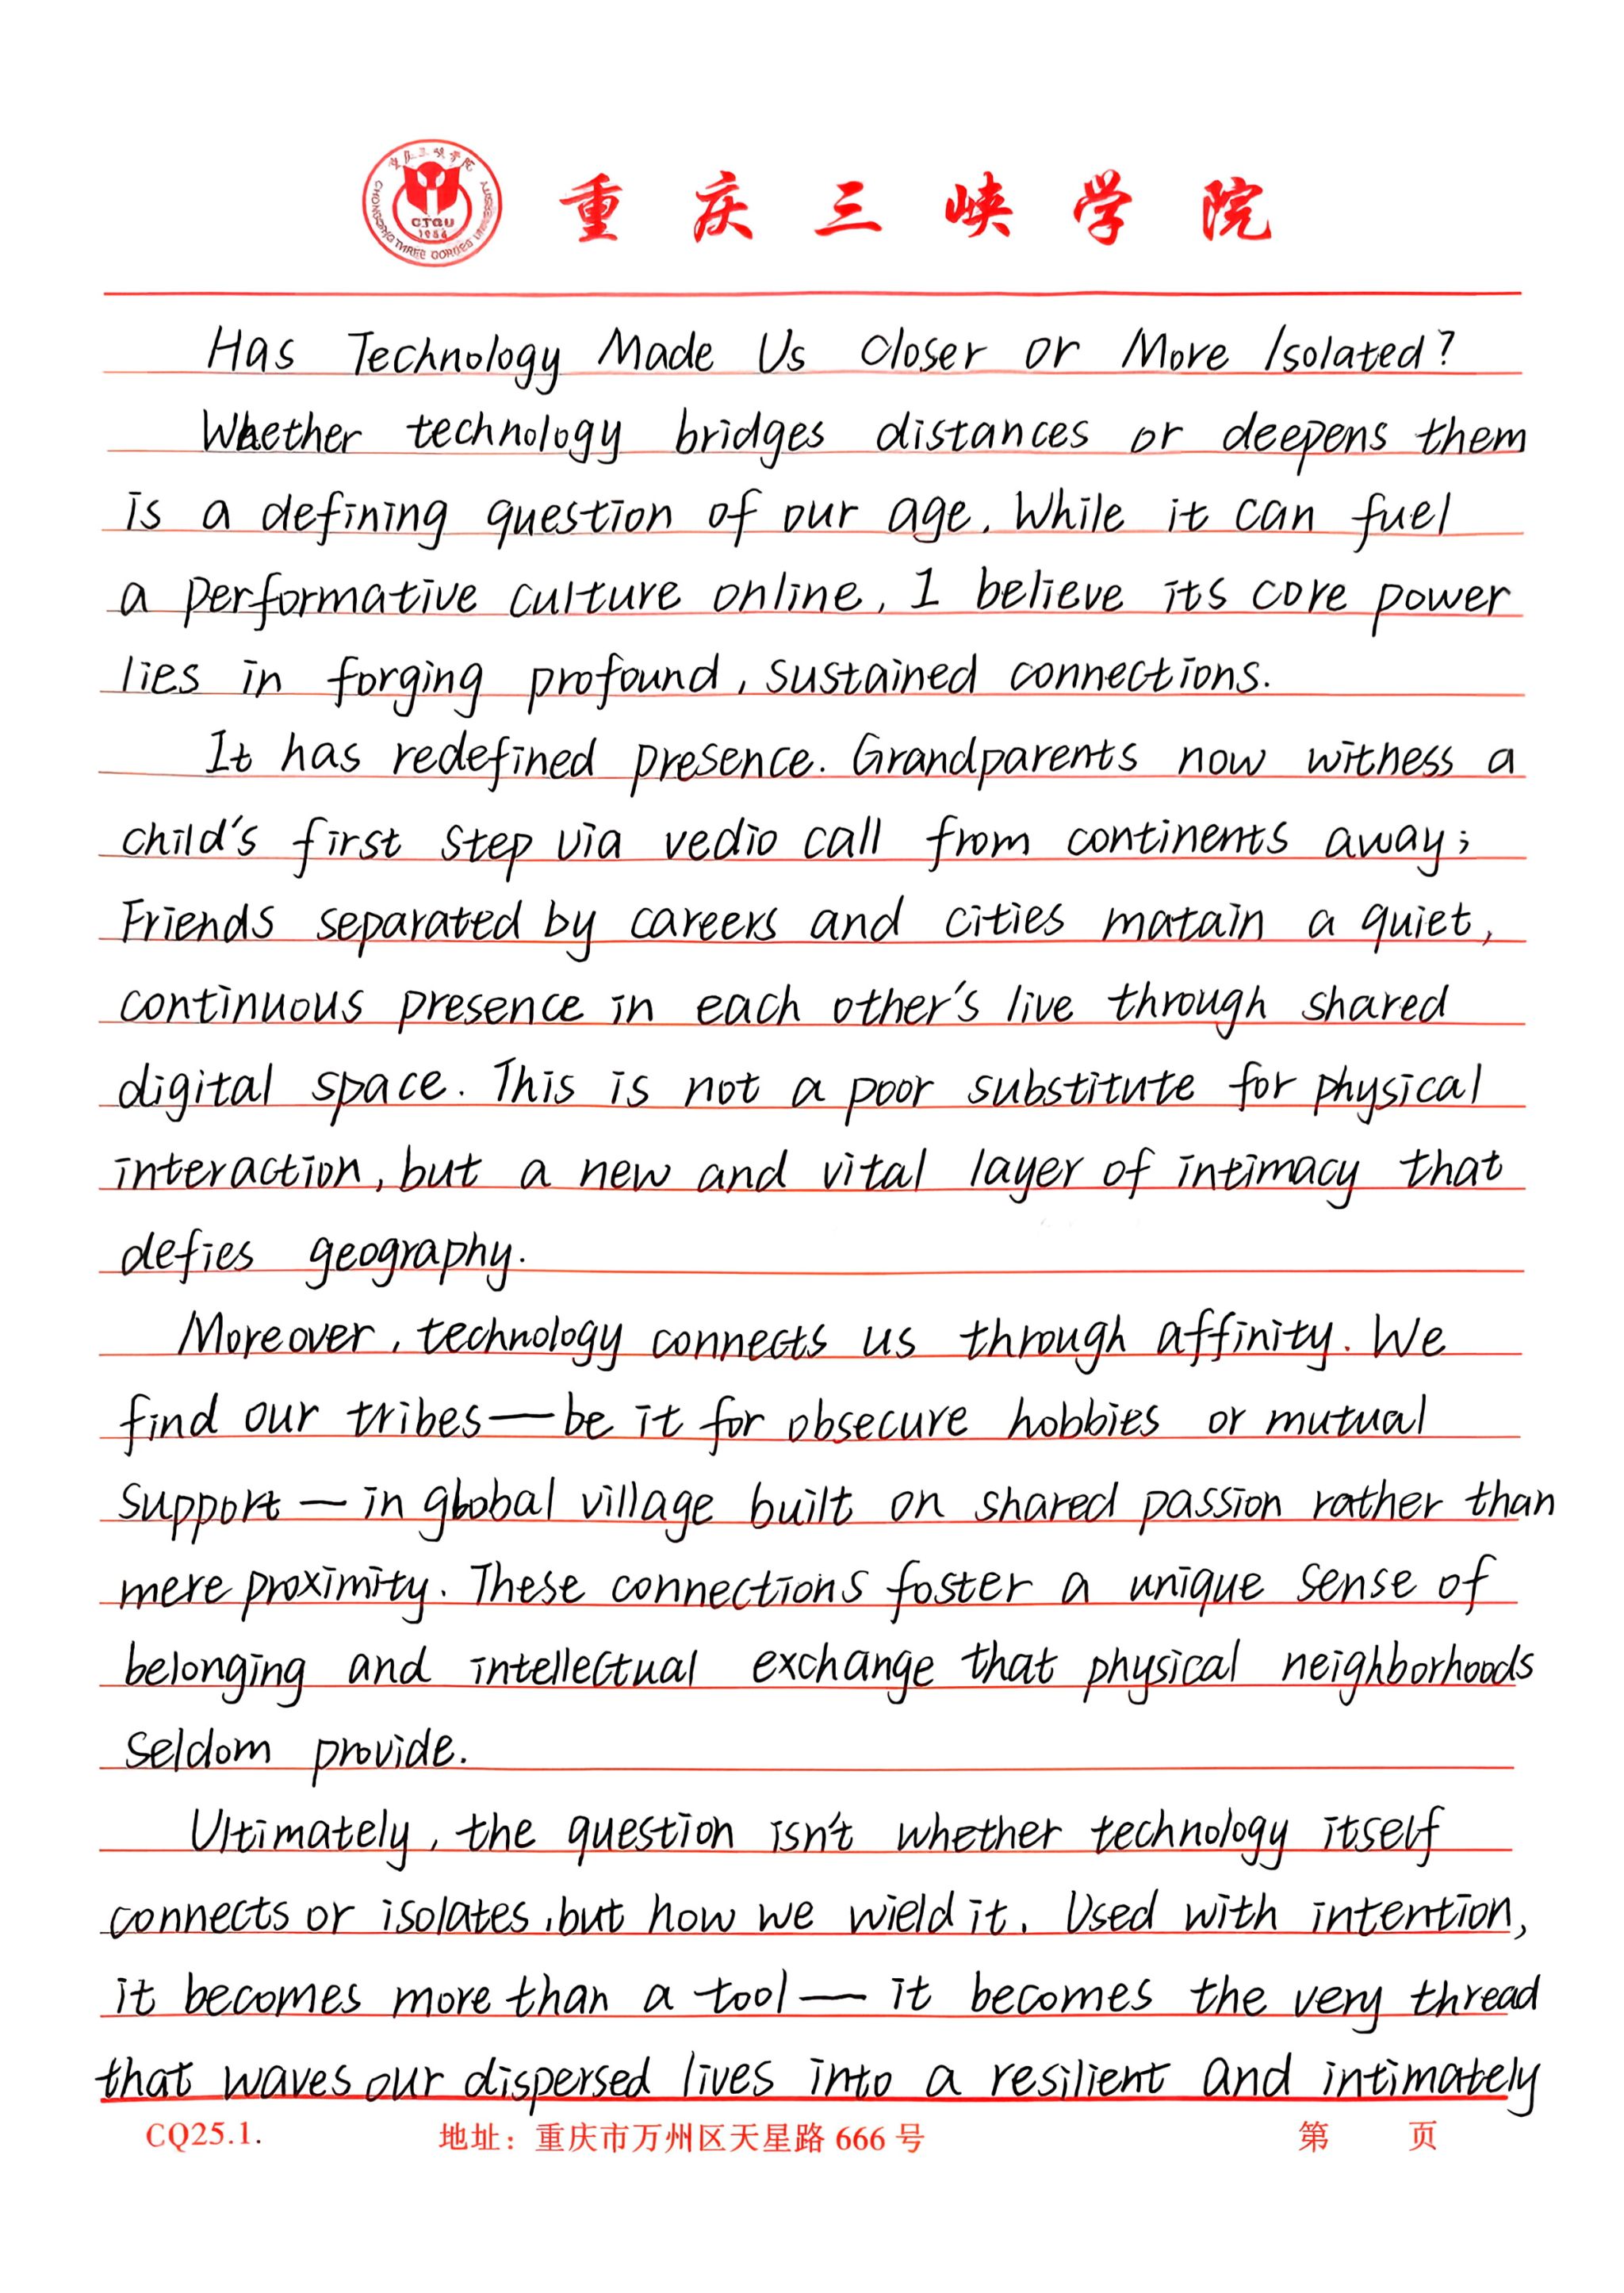 重庆三峡学院
CHONGQING THREE GORGES UNIVERSITY
CTGU
1956
重庆三峡学院
Has Technology Made Us Closer or More Isolated?
Whether technology bridges distances or deepens them
is a defining question of our age. While it can fuel
a performative culture online, I believe its core power
lies in forging profound, sustained connections.
It has redefined presence. Grandparents now witness a
child's first step via vedio call from continents away;
Friends separated by careers and cities matain a quiet,
continuous presence in each other's live through shared
digital space. This is not a poor substitute for physical
interaction, but a new and vital layer of intimacy that
defies geography.
Moreover, technology connects us through affinity. We
find our tribes—be it for obsecure hobbies or mutual
support—in global village built on shared passion rather than
mere proximity. These connections foster a unique sense of
belonging and intellectual exchange that physical neighborhoods
seldom provide.
Ultimately, the question isn't whether technology itself
connects or isolates, but how we wield it. Used with intention,
it becomes more than a tool—it becomes the very thread
that waves our dispersed lives into a resilient and intimately
CQ25.1. 地址：重庆市万州区天星路 666 号 第 页